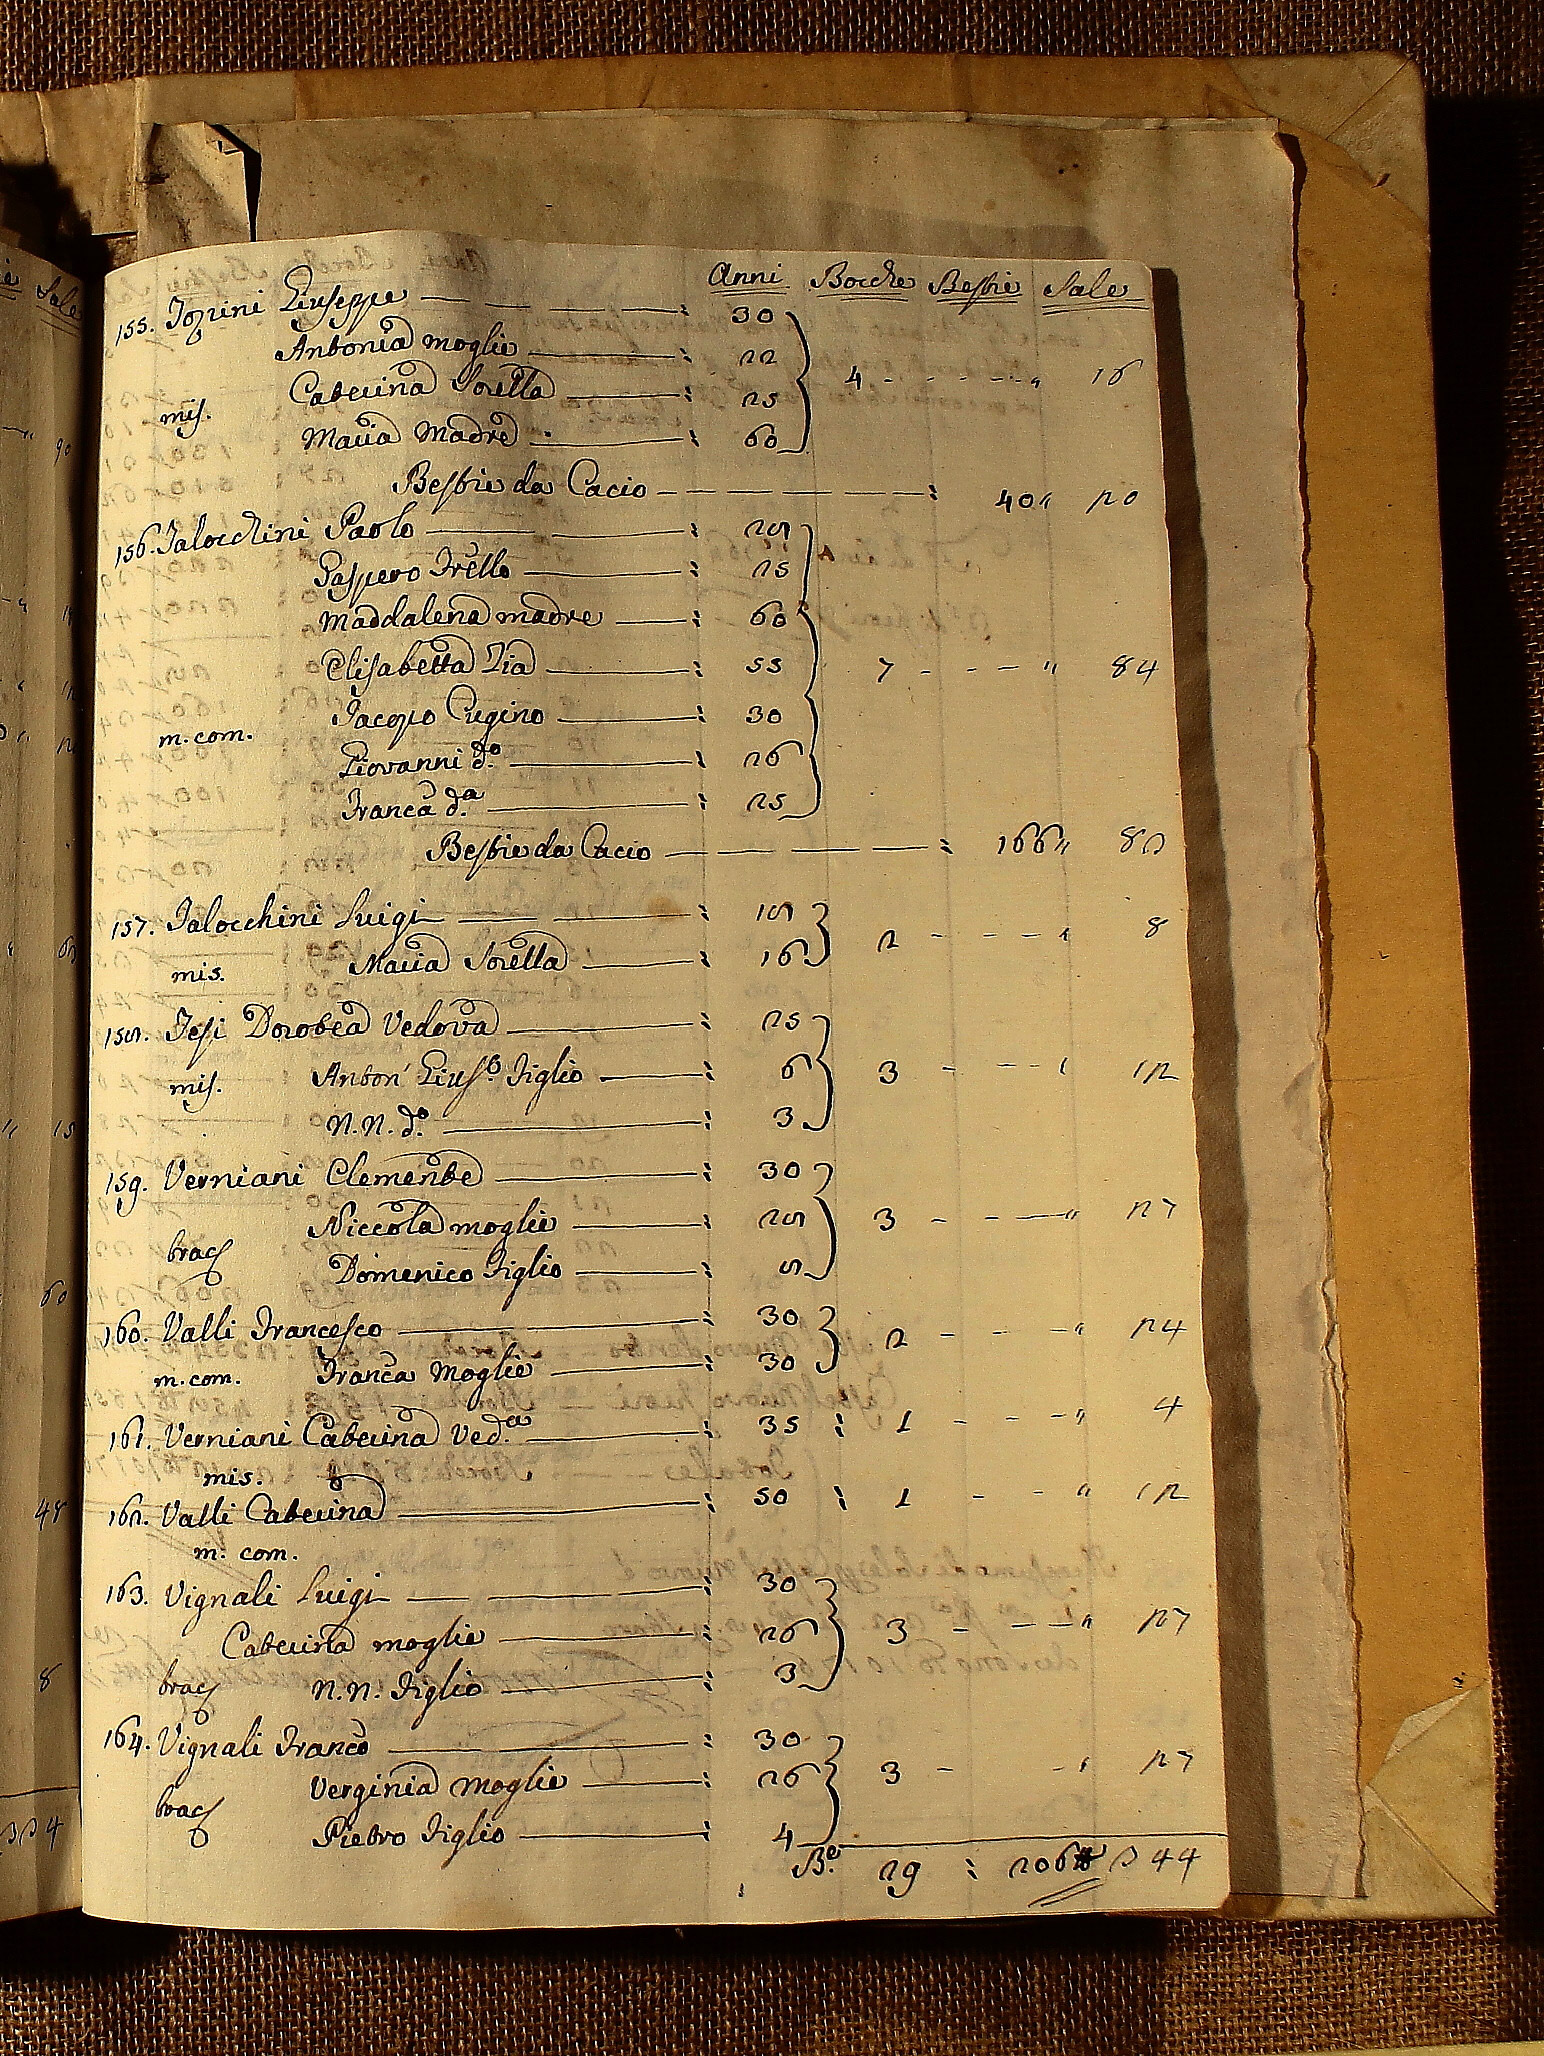 Anni Bocche Bestie Sale
155. Tozini Giuseppe : 30
Antonia moglie : 22
Caterina Sorella : 25 4 - - - - - " 16
mis.
Maria Madre : 60
Bestie da Cacio : 40 " 20
156. Talocchini Paolo : 28
Gaspero Frello : 25
Maddalena madre : 60
Elisabetta Zia : 55 7 - - - " 84
Jacopo Cugino : 30
m. com.
Giovanni d.o : 26
Franca d.a : 25
Bestie da Cacio : 166 " 83
157. Talocchini Luigi : 18
2 - - - " 8
mis. Maria Sorella : 16
158. Tesi Dorotea Vedova : 25
mis. Anton' Gius.e Figlio : 6 3 - - - " 12
N.N. d.o : 3
159. Verniani Clemente : 30
Niccola moglie : 28 3 - - - " 27
brac
Domenico Figlio : 8
160. Valli Francesco : 30
2 - - - " 24
m. com. Franca Moglie : 30
161. Verniani Caterina Ved.a : 35 : 1 - - - " 4
mis.
162. Valli Caterina : 50 : 1 - - " 12
m. com.
163. Vignali Luigi : 30
Caterina moglie : 26 3 - - - " 27
brac N.N. Figlio : 3
164. Vignali Franco : 30
Verginia moglie : 26 3 - - " 27
brac
Pietro Figlio : 4
B.e 29 : 206 344